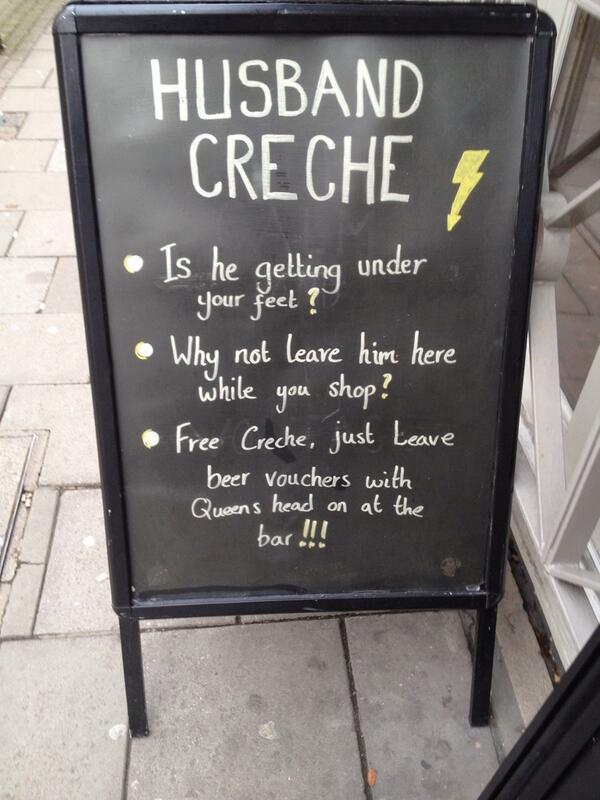 HUSBAND
CRECHE
Is he getting under
your feet?
Why not leave him here
while you shop?
Free Creche, just Leave
beer vouchers with
Queens head on at the
bar!!!